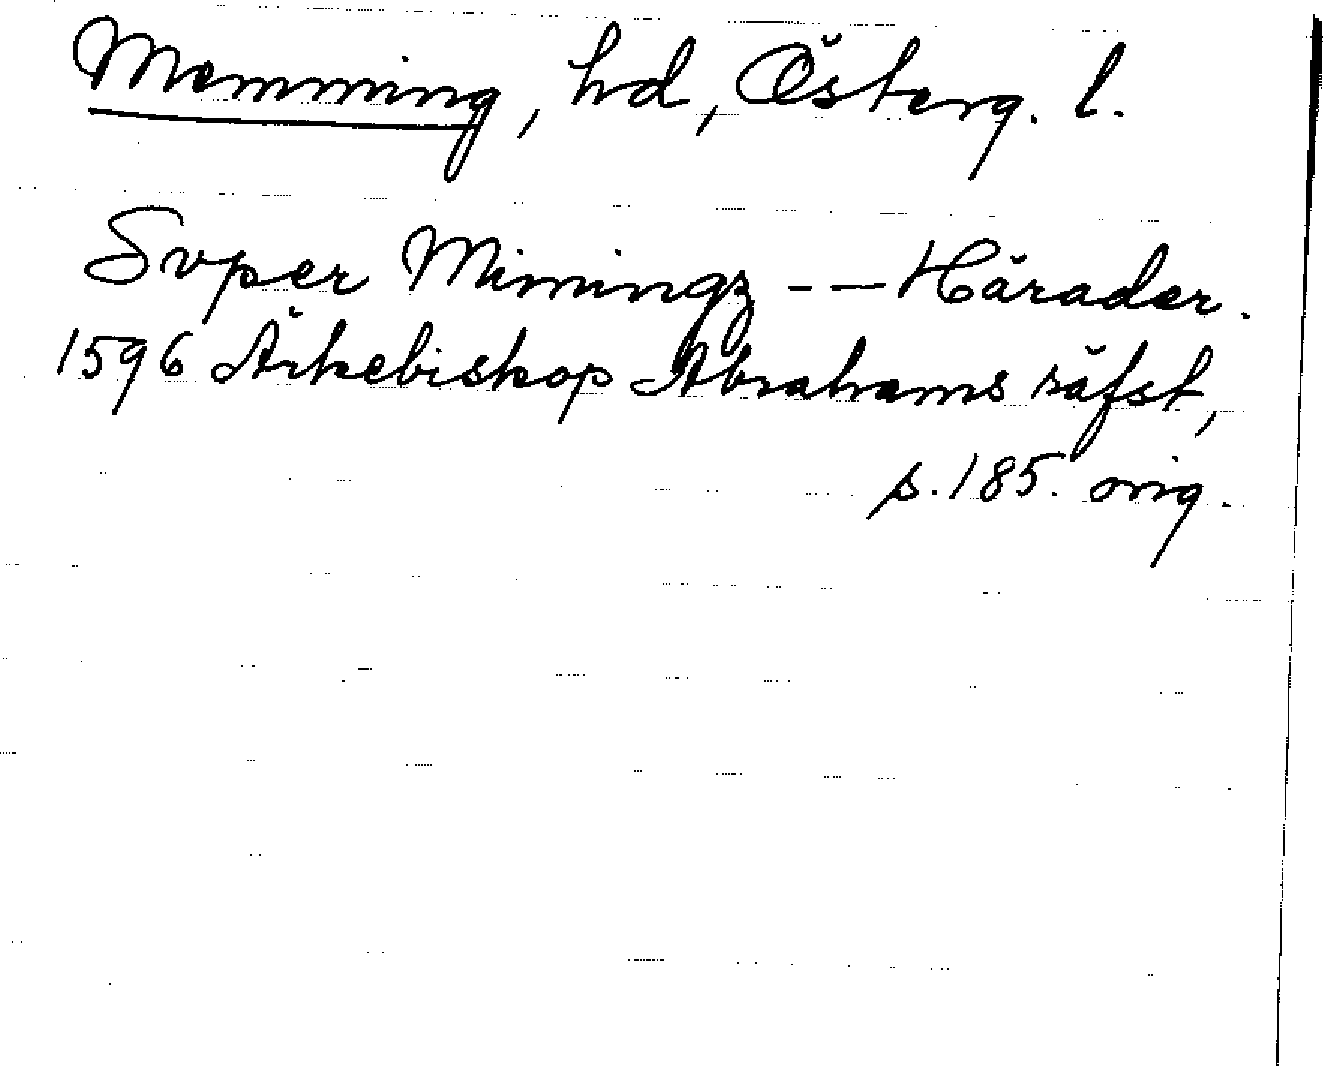 Memming, hd, Österg. l.
Svper Mimingz -- Härader.
1596 Ärkebiskop Abrahams räfst,
s. 185. orig.